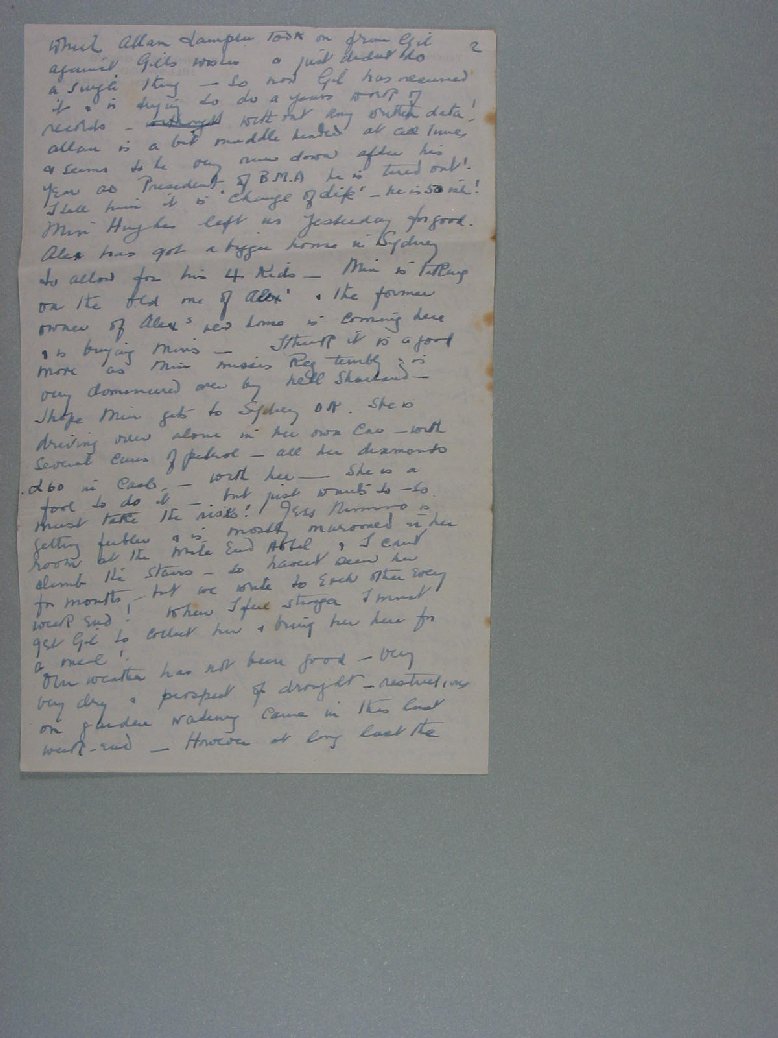 2
which Allan Lampen took on from Gil
against Gils wishes & just didnt do
a single thing — so now Gil has resumed
it & is trying to do a years work of
records — without any written data!
Allan is a bit muddle headed at all times
& seems to be very run down after his
year as President of B.M.A he is tired out!
I tell him it is "Change of life" — he is 50 ish!
Min Hughes left us yesterday for good.
Alex has got a bigger home in Sydney
to allow for his 4 kids — Min is taking
on the old one of Alex' & the former
owner of Alex's new home is coming here
& is buying Mins — I think it is a good
move as Min misses Reg terribly & is
very domineered over by Nell
I hope Min gets to Sydney OK. She is
driving over alone in her own Car — with
several cans of petrol — all her diamonds
£60 in Cash — with her — She is a
fool to do it — but just wants to — so
must take the risks! Jess Nimmo is
getting feebler & is mostly marooned in her
room at the Mile End Hotel & I cant
climb the stairs — so havent seen her
for months — but we write to each other every
week end! When I feel stronger I must
get Gil to collect her & bring her here for
a meal!
Our weather has not been good — very
very dry & prospect of drought — restrictions
on garden watering came in this last
week-end — However at long last the